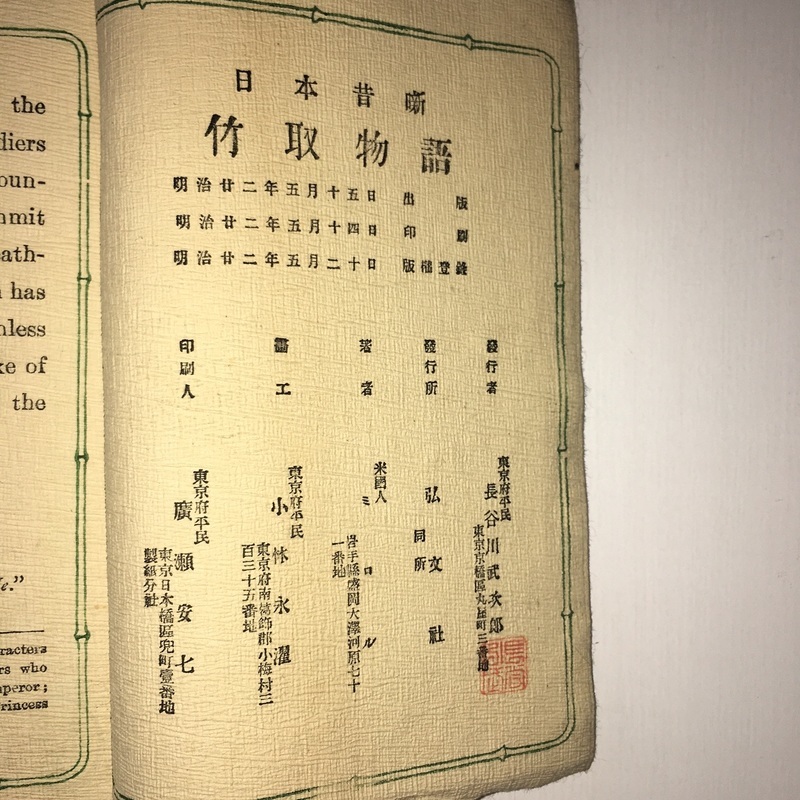 the
diers
oun-
mmit
ath-
has
nless
ke of
the
le.”
racters
rs who
peror;
rincess
日本昔噺
竹取物語
明治廿二年五月十五日 出版
明治廿二年五月十四日 印刷
明治廿二年五月二十日 版權登錄
發行者
東京府平民
長谷川武次郎
東京京橋區丸屋町三番地
發行所
弘文社
同所
著者
米國人
ミロル
岩手縣盛岡大澤河原七十
一番地
畫工
東京府平民
小林永濯
東京府南葛飾郡小梅村三
百三十五番地
印刷人
東京府平民
廣瀬安七
東京日本橋區兜町壹番地
製紙分社